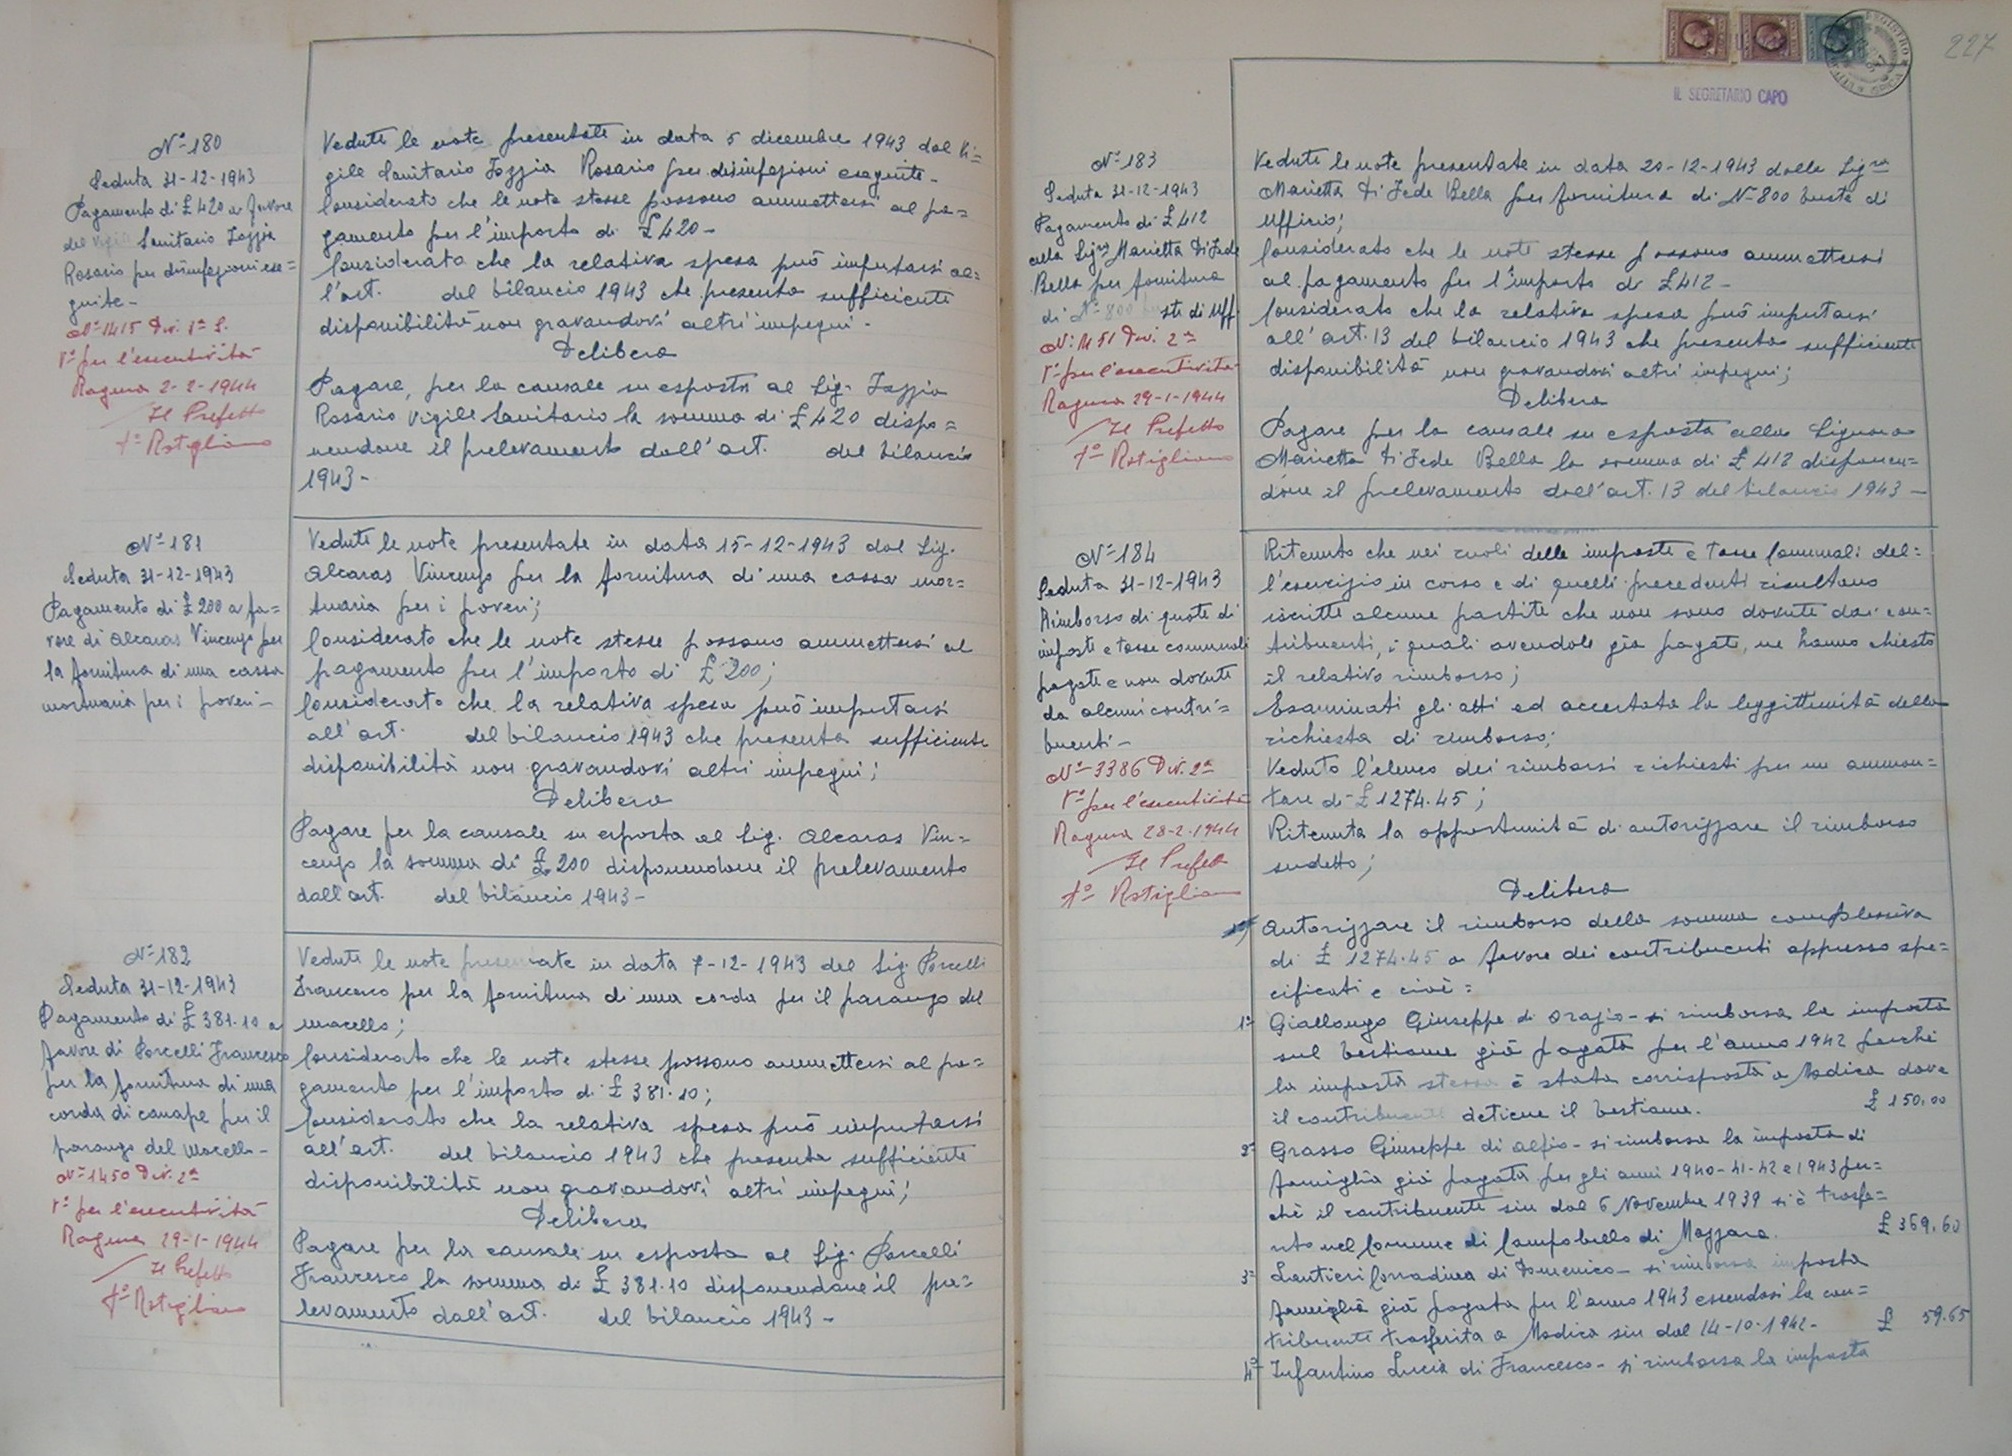 N° 180
Seduta 31-12-1943
Pagamento di £ 420 a favore
del Vigile Sanitario Iozzia
Rosario per disinfezioni ese=
guite-
N° 1415 Div. 1ª S.
V° per l'esecutività
Ragusa 2-2-1944
Il Prefetto
f° Rotigliano
Vedute le note presentate in data 5 dicembre 1943 dal Vi=
gile Sanitario Iozzia Rosario per disinfezioni eseguite-
Considerato che le note stesse possono ammettersi al pa=
gamento per l'importo di £ 420-
Considerato che la relativa spesa può imputarsi al=
l'art. del bilancio 1943 che presenta sufficiente
disponibilità non gravandovi altri impegni-
Delibera
Pagare, per la causale su esposta al Sig. Iozzia
Rosario Vigile Sanitario la somma di £ 420 dispo=
nendone il prelevamento dall'art. del bilancio
1943-
N° 181
Seduta 31-12-1943
Pagamento di £ 200 a fa=
vore di Alcaras Vincenzo per
la fornitura di una cassa
mortuaria per i poveri-
Vedute le note presentate in data 15-12-1943 dal Sig.
Alcaras Vincenzo per la fornitura di una cassa mor=
tuaria per i poveri;
Considerato che le note stesse possono ammettersi al
pagamento per l'importo di £ 200;
Considerato che la relativa spesa può imputarsi
all'art. del bilancio 1943 che presenta sufficiente
disponibilità non gravandovi altri impegni;
Delibera
Pagare per la causale su esposta al Sig. Alcaras Vin=
cenzo la somma di £ 200 disponendone il prelevamento
dall'art. del bilancio 1943-
N° 182
Seduta 31-12-1943
Pagamento di £ 381.10 a
favore di Porcelli Francesco
per la fornitura di una
corda di canape per il
parango del Macello-
N° 1450 Div. 2ª
V° per l'esecutività
Ragusa 29-1-1944
Il Prefetto
f° Rotigliano
Vedute le note presentate in data 7-12-1943 del Sig. Porcelli
Francesco per la fornitura di una corda per il parango del
macello;
Considerato che le note stesse possono ammettersi al pa=
gamento per l'importo di £ 381.10;
Considerato che la relativa spesa può imputarsi
all'art. del bilancio 1943 che presenta sufficiente
disponibilità non gravandovi altri impegni;
Delibera
Pagare per la causale su esposta al Sig. Porcelli
Francesco la somma di £ 381.10 disponendone il pre=
levamento dall'art. del bilancio 1943-
227
IL SEGRETARIO CAPO
N° 183
Seduta 31-12-1943
Pagamento di £ 412
alla Sigra Marietta Di Fede
Bella per fornitura
di N° 800 buste di Uff.
N° 1451 Div. 2ª
V° per l'esecutività
Ragusa 29-1-1944
Il Prefetto
f° Rotigliano
Vedute le note presentate in data 20-12-1943 dalla Sigra
Marietta Di Fede Bella per fornitura di N° 800 buste di
Ufficio;
Considerato che le note stesse possono ammettersi
al pagamento per l'importo di £ 412-
Considerato che la relativa spesa può imputarsi
all'art. 13 del bilancio 1943 che presenta sufficiente
disponibilità non gravandovi altri impegni;
Delibera
Pagare per la causale su esposta alla Signora
Marietta Di Fede Bella la somma di £ 412 disponen=
done il prelevamento dall'art. 13 del bilancio 1943-
N° 184
Seduta 31-12-1943
Rimborso di quote di
imposte e tasse comunali
pagate e non dovute
da alcuni contri=
buenti-
N° 3386 Div. 2ª
V° per l'esecutività
Ragusa 28-2-1944
Il Prefetto
f° Rotigliano
Ritenuto che nei ruoli delle imposte e tasse Comunali del=
l'esercizio in corso e di quelli precedenti risultano
iscritte alcune partite che non sono dovute dai con=
tribuenti, i quali avendole già pagate, ne hanno chiesto
il relativo rimborso;
Esaminati gli atti ed accertata la leggittimità della
richiesta di rimborso;
Veduto l'elenco dei rimborsi richiesti per un ammon=
tare di £ 1274.45;
Ritenuta la opportunità di autorizzare il rimborso
sudetto;
Delibera
Autorizzare il rimborso della somma complessiva
di £ 1274.45 a favore dei contribuenti appresso spe=
cificati e cioè=
1° Giallongo Giuseppe di Orazio- si rimborsa la imposta
sul bestiame già pagata per l'anno 1942 perchè
la imposta stessa è stata corrisposta a Modica dove
il contribuente detiene il bestiame. £ 150,00
2° Grasso Giuseppe di Alfio- si rimborsa la imposta di
famiglia già pagata per gli anni 1940-41-42 e 1943 per=
chè il contribuente sin dal 6 Novembre 1939 si è trasfe=
rito nel Comune di Campobello di Mazzara. £ 369.60
3° Lentieri Corradina di Domenico- si rimborsa imposta
famiglia già pagata per l'anno 1943 essendosi la con=
tribuente trasferita a Modica sin dal 14-10-1942- £ 59.65
4° Infantino Lucia di Francesco- si rimborsa la imposta